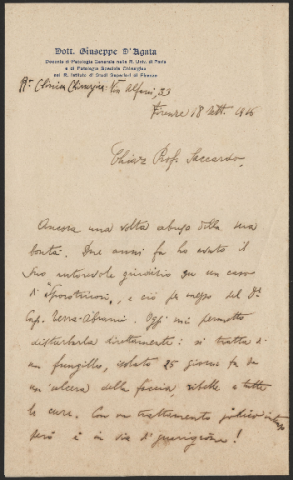 Dott. Giuseppe D'Agata
Docente di Patologia Generale nella R. Univ. di Pavia
e di Patologia Speciale Chirurgica
nel R. Istituto di Studi Superiori di Firenze
R.a Clinica Chirurgica - Via Alfani, 33
Firenze 18 Sett. 1916
Chiar. Prof. Saccardo,
Ancora una volta abuso della sua
bontà. Due anni fa ho avuto il
Suo autorevole giudizio su un caso
di "Sporotricosi", e ciò per mezzo del Dr
Cap. Terra-Abrami. Oggi mi permetto
disturbarla direttamente: si tratta di
un funghillo, isolato 25 giorni fa da
un'ulcera della faccia, ribelle a tutte
le cure. Con un trattamento jodico
però è in via di guarigione!